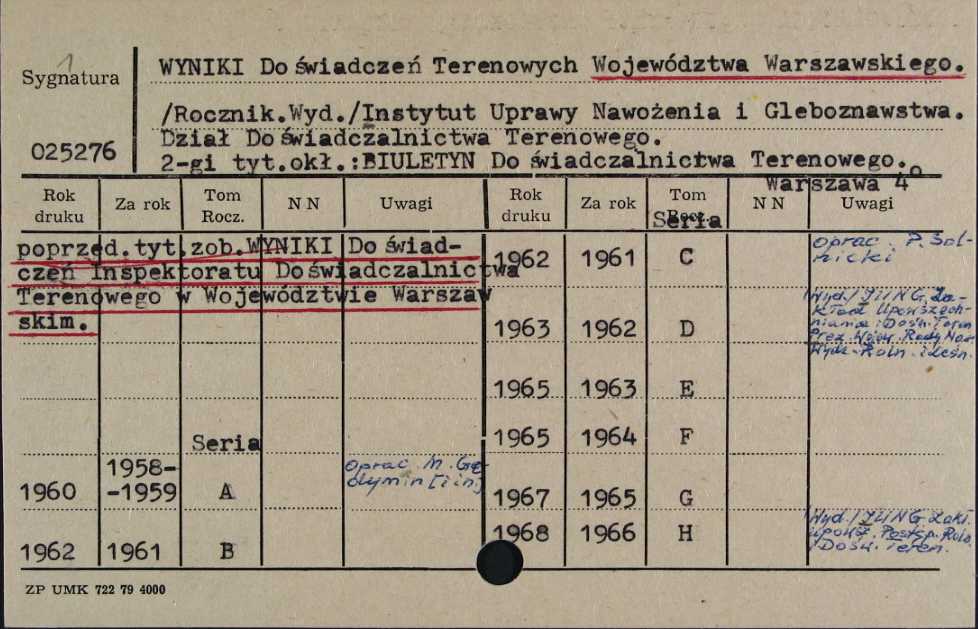 Sygnatura
1
025276
WYNIKI Doświadczeń Terenowych Województwa Warszawskiego.
/Rocznik.Wyd./Instytut Uprawy Nawożenia i Gleboznawstwa.
Dział Doświadczalnictwa Terenowego.
2-gi tyt.okł.:BIULETYN Doświadczalnictwa Terenowego.
Warszawa 4°
Rok druku Za rok Tom Rocz. N N Uwagi Rok druku Za rok Tom Rocz. N N Uwagi
poprzed.tyt.zob.WYNIKI Doświad-
czeń Inspektoratu Doświadczalnictwa
Terenowego w Województwie Warszaw
skim.
Seria
1960 1958-
-1959 A Oprac. M. Ge-
dymin [i in.]
1962 1961 B
Seria
1962 1961 C Oprac. P. Sol-
nicki
1963 1962 D Wyd./IUNG. Za-
kład Upowszech-
niania i Dośw. Teren
Prez. Wojew. Rady Nar.
Wydz. Roln. i Leśn.
1965 1963 E
1965 1964 F
1967 1965 G
1968 1966 H Wyd./IUNG. Zakł.
Upowsz. Postęp. Roln.
i Dośw. Teren.
ZP UMK 722 79 4000